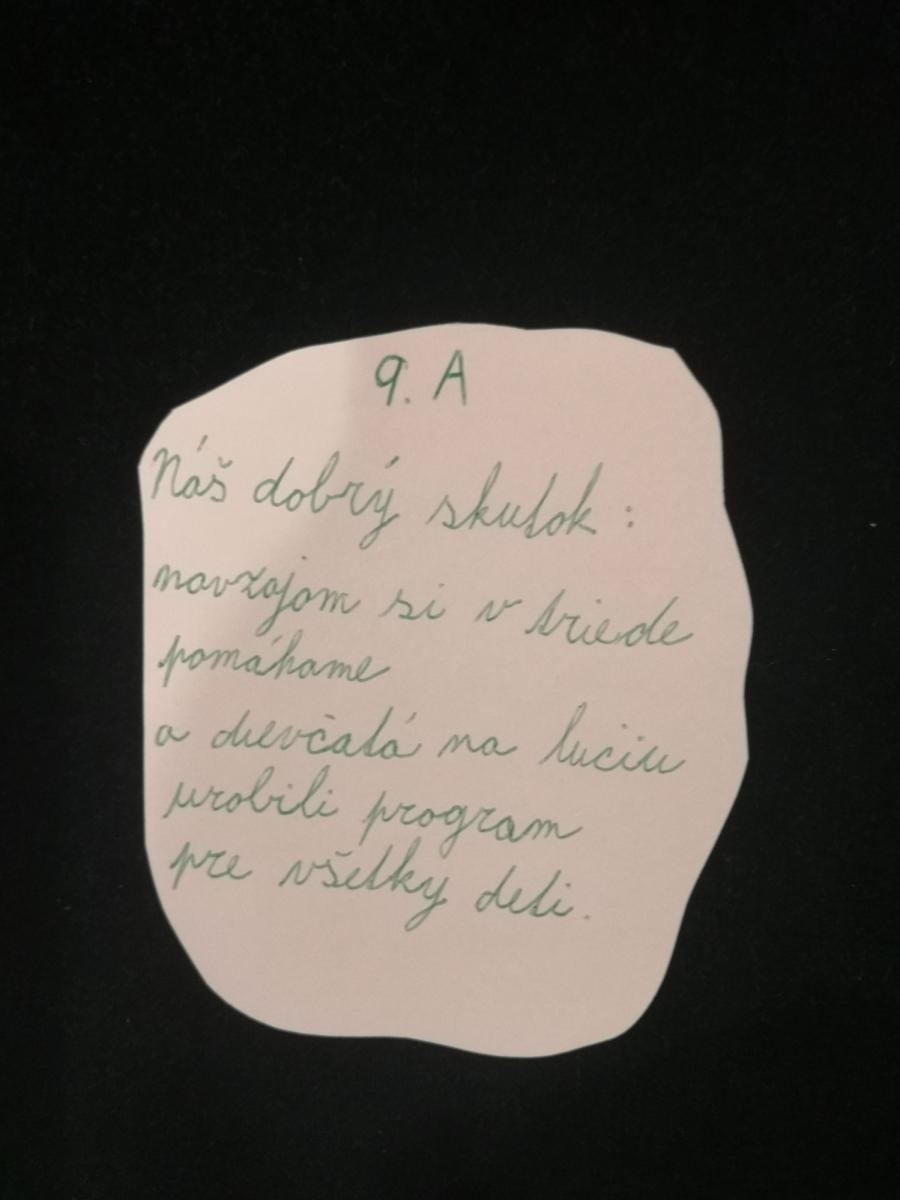 9. A
Náš dobrý skutok :
navzájom si v triede
pomáhame
a dievčatá na luciu
urobili program
pre všetky deti.